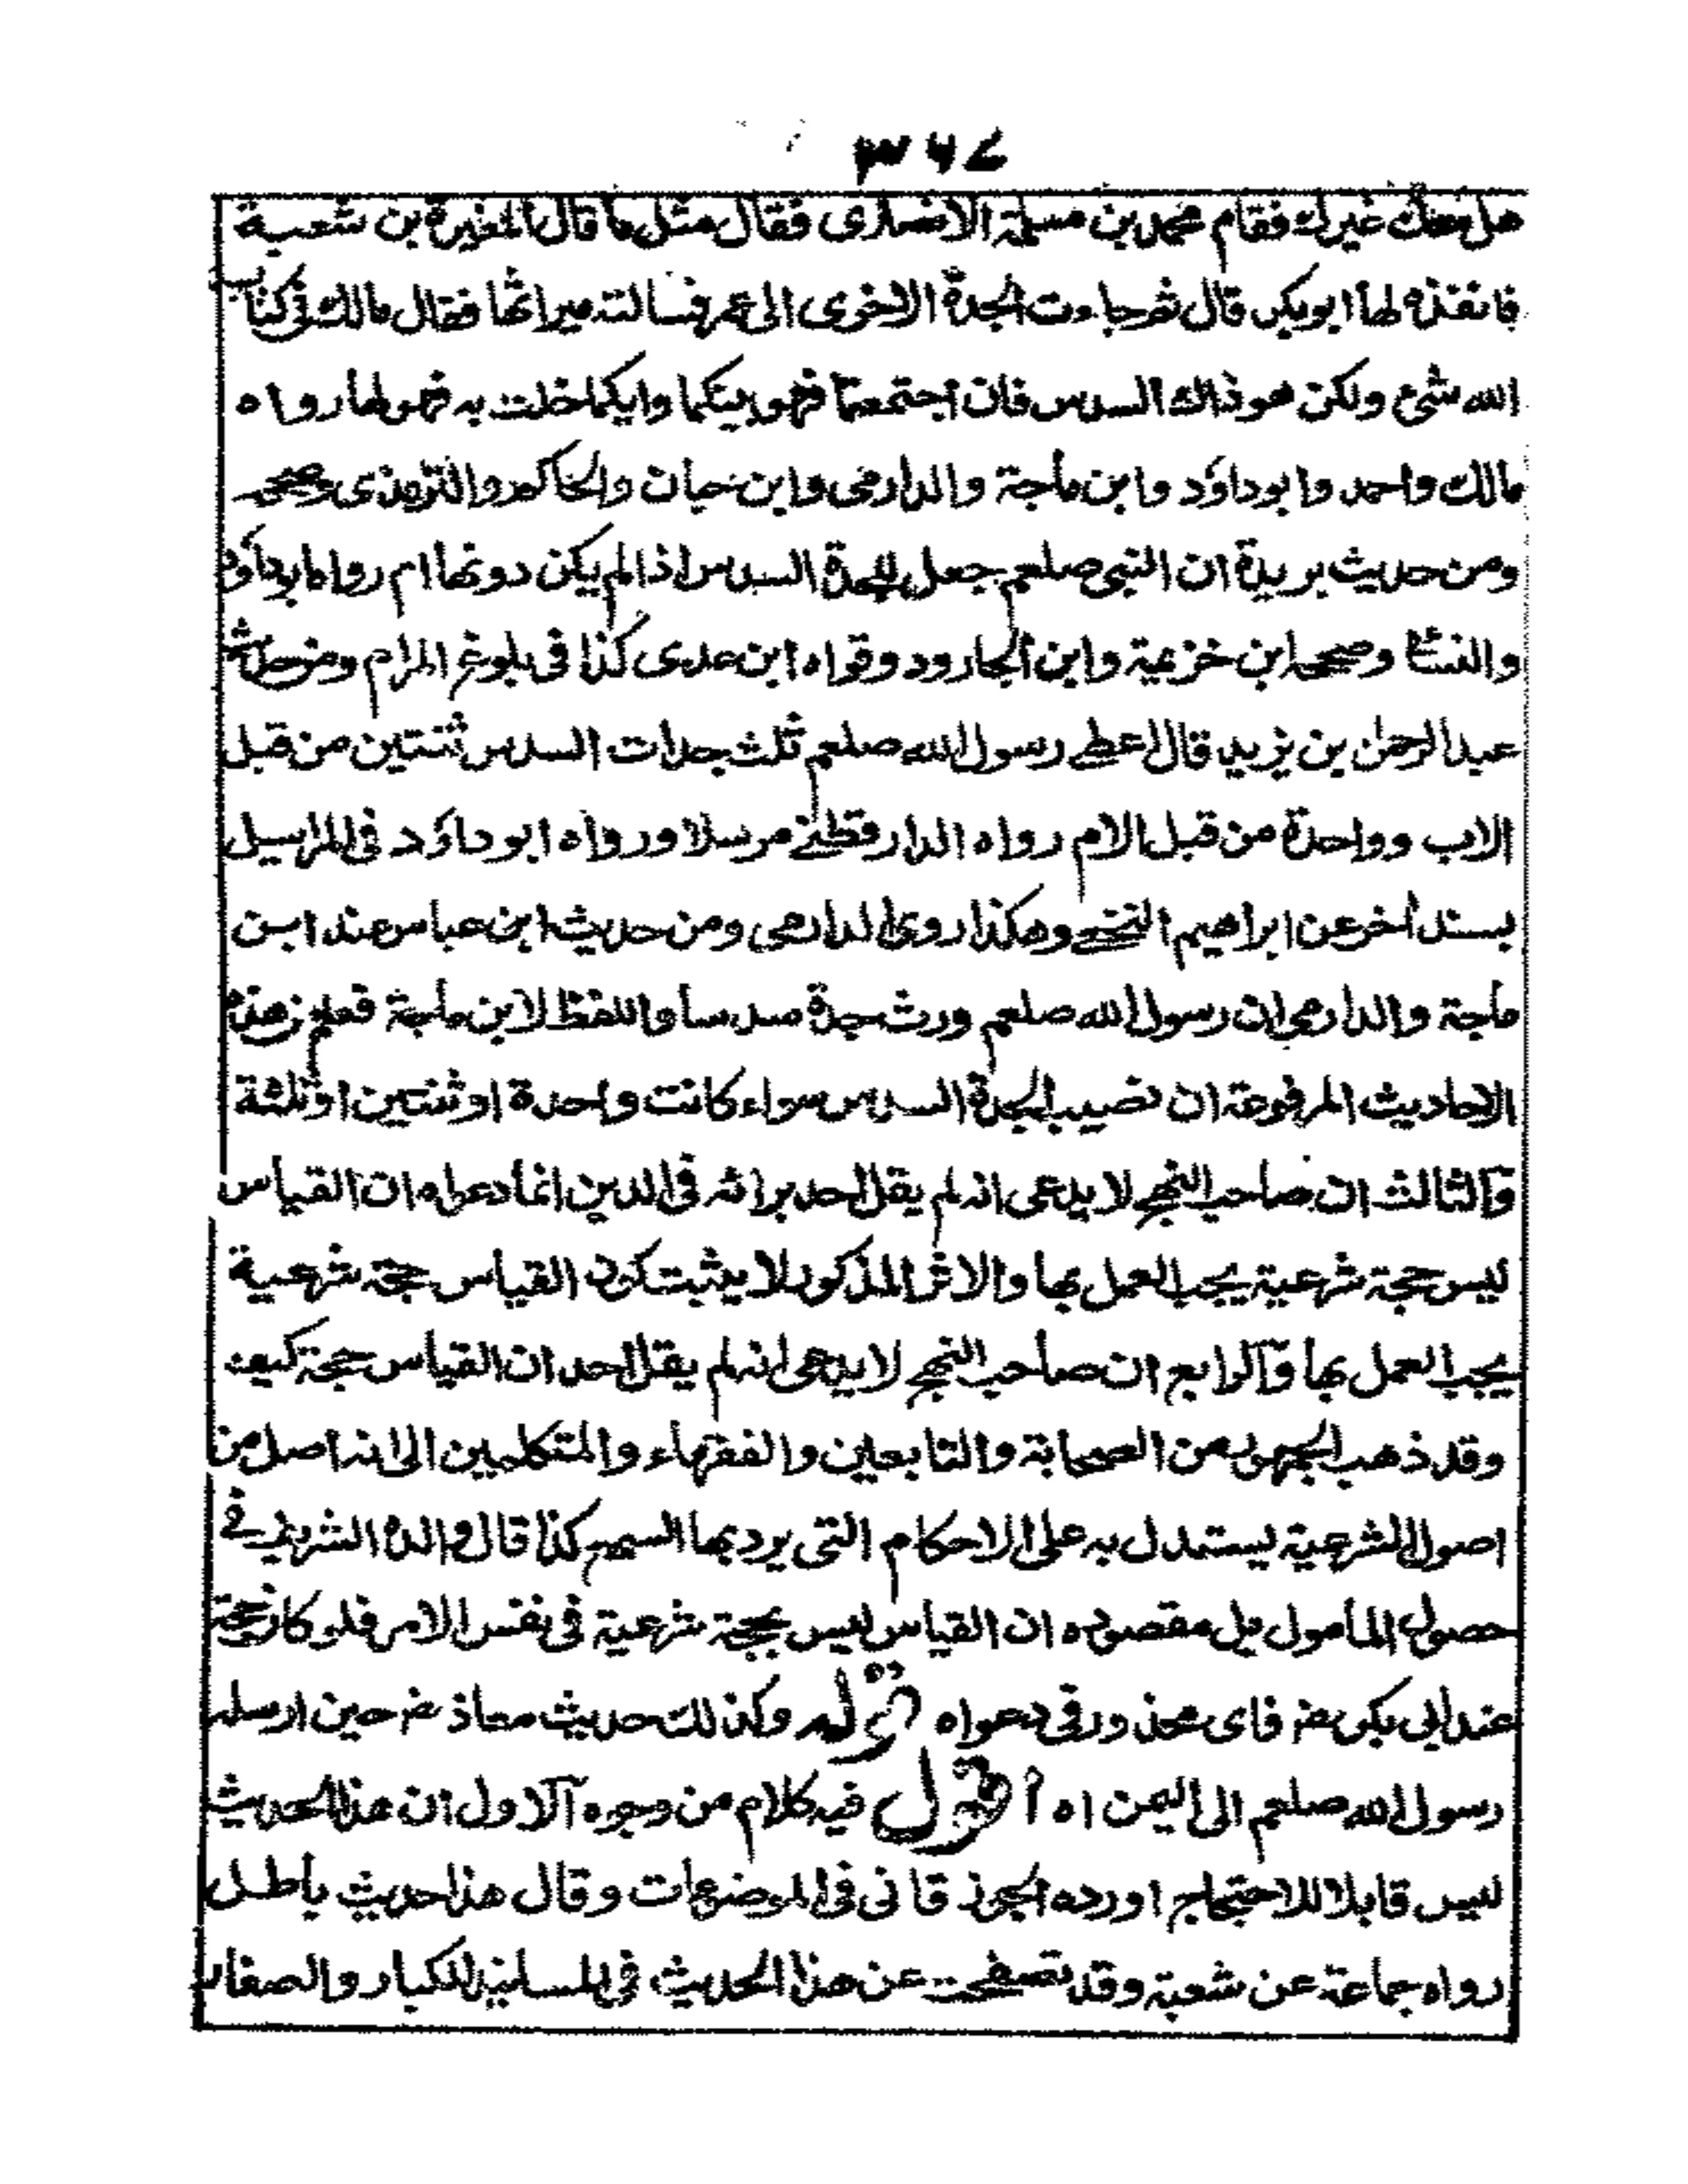 ٣٦٧
هل معك غيرك فقام محمد بن مسلمة الانصارى فقال مثل ما قال المغيرة بن شعبة
فانفذه لها ابو بكر قال ثم جاءت الجدة الاخرى الى عمر فسالته ميراثها فقال مالك فى كتاب
الله شئ ولكن هو ذاك السدس فان اجتمعتما فهو بينكما وايكما خلت به فهو لها رواه
مالك واحمد وابو داؤد وابن ماجة والدارمى وابن حبان والحاكم والترمذى وصححه
ومن حديث بريدة ان النبى صلعم جعل للجدة السدس اذا لم يكن دونها ام رواه ابو داؤد
والنسائى وصححه ابن خزيمة وابن الجارود وقواه ابن عدى كذا فى بلوغ المرام ومن حديث
عبد الرحمن بن يزيد قال اعطى رسول الله صلعم ثلث جدات السدس ثنتين من قبل
الاب وواحدة من قبل الام رواه الدارقطنى مرسلا ورواه ابو داؤد فى المراسيل
بسند آخر عن ابراهيم النخعى وهكذا روى الدارمى ومن حديث ابن عباس عند ابن
ماجة والدارمى ان رسول الله صلعم ورث جدة سدسا واللفظ لابن ماجة فعلم من هذه
الاحاديث المرفوعة ان نصيب الجدة السدس سواء كانت واحدة او ثنتين او ثلثة
وآلثالث ان صاحب النهج لا يدعى انه لم يقل احد برائه فى الدين انما دعواه ان القياس
ليس حجة شرعية يجب العمل بها والاثر المذكور لا يثبت كون القياس حجة شرعية
يجب العمل بها وآلرابع ان صاحب النهج لا يدعى انه لم يقل احد ان القياس حجة كيف
وقد ذهب الجمهور من الصحابة والتابعين والفقهاء والمتكلمين الى انه اصل من
اصول الشرعية يستدل به على الاحكام التى يرد بها السمع كذا قال والده الشريف فى
حصول المأمول بل مقصوده ان القياس ليس بحجة شرعية فى نفس الامر فلو كان حجة
عند ابى بكر رض فاى محذور فى دعواه قوله وكذلك حديث معاذ رض حين ارسله
رسول الله صلعم الى اليمن اه أقول فيه كلام من وجوه آلاول ان هذا الحديث
ليس قابلا للاحتجاج اورده الجوزقانى فى الموضوعات وقال هذا حديث باطل
رواه جماعة عن شعبة وقد تصفحت عن هذا الحديث فى المسانيد الكبار والصغار